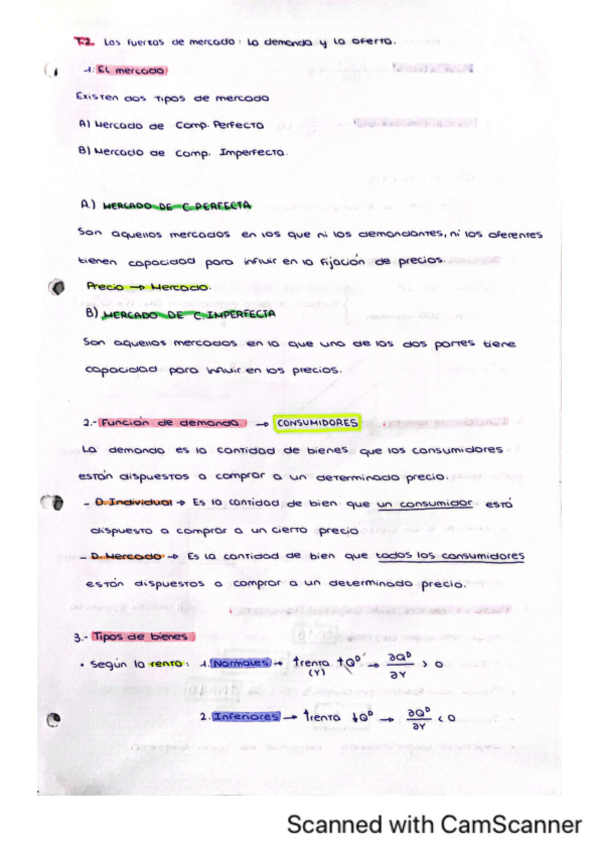 T.2. Las fuerzas de mercado: la demanda y la oferta.
1. El mercado
Existen dos tipos de mercado
A) Mercado de Comp. Perfecta
B) Mercado de Comp. Imperfecta.
A.) MERCADO DE C.PERFECTA
Son aquellos mercados en los que ni los demandantes, ni los oferentes
tienen capacidad para influir en la fijación de precios.
Precio → Mercado.
B) MERCADO DE C.IMPERFECTA
Son aquellos mercados en la que una de los dos partes tiene
capacidad para influir en los precios.
2.- Función de demanda → CONSUMIDORES
La demanda es la cantidad de bienes que los consumidores
están dispuestos a comprar a un determinado precio.
- D.Individual → Es la cantidad de bien que un consumidor está
dispuesto a comprar a un cierto precio
- D.Mercado → Es la cantidad de bien que todos los consumidores
están dispuestos a comprar a un determinado precio.
3.- Tipos de bienes
• Según la renta: 1. Normales → ↑renta ↑Qᴰ → ∂Qᴰ/∂Y > 0
(Y)
2. Inferiores → ↑renta ↓Qᴰ → ∂Qᴰ/∂Y < 0
Scanned with CamScanner